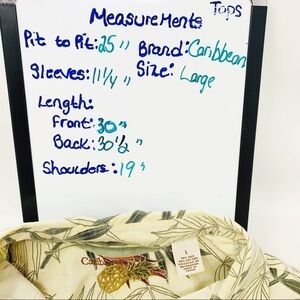 Measurements Tops
Pit to Pit: 25" Brand: Caribbean
Sleeves: 11 1/4" Size: Large
Length:
Front: 30"
Back: 30 1/2"
Shoulders: 19"
L